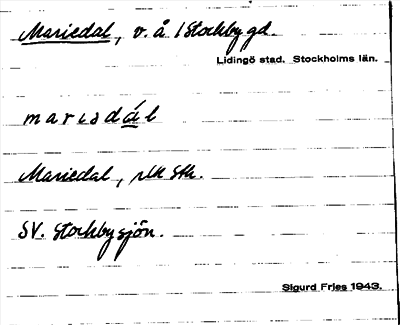 Mariedal, v. å. i Stockby gd.
Lidingö stad. Stockholms län.
marɩsdál
Mariedal,
SV. Stockbysjön.
Sigurd Fries 1943.